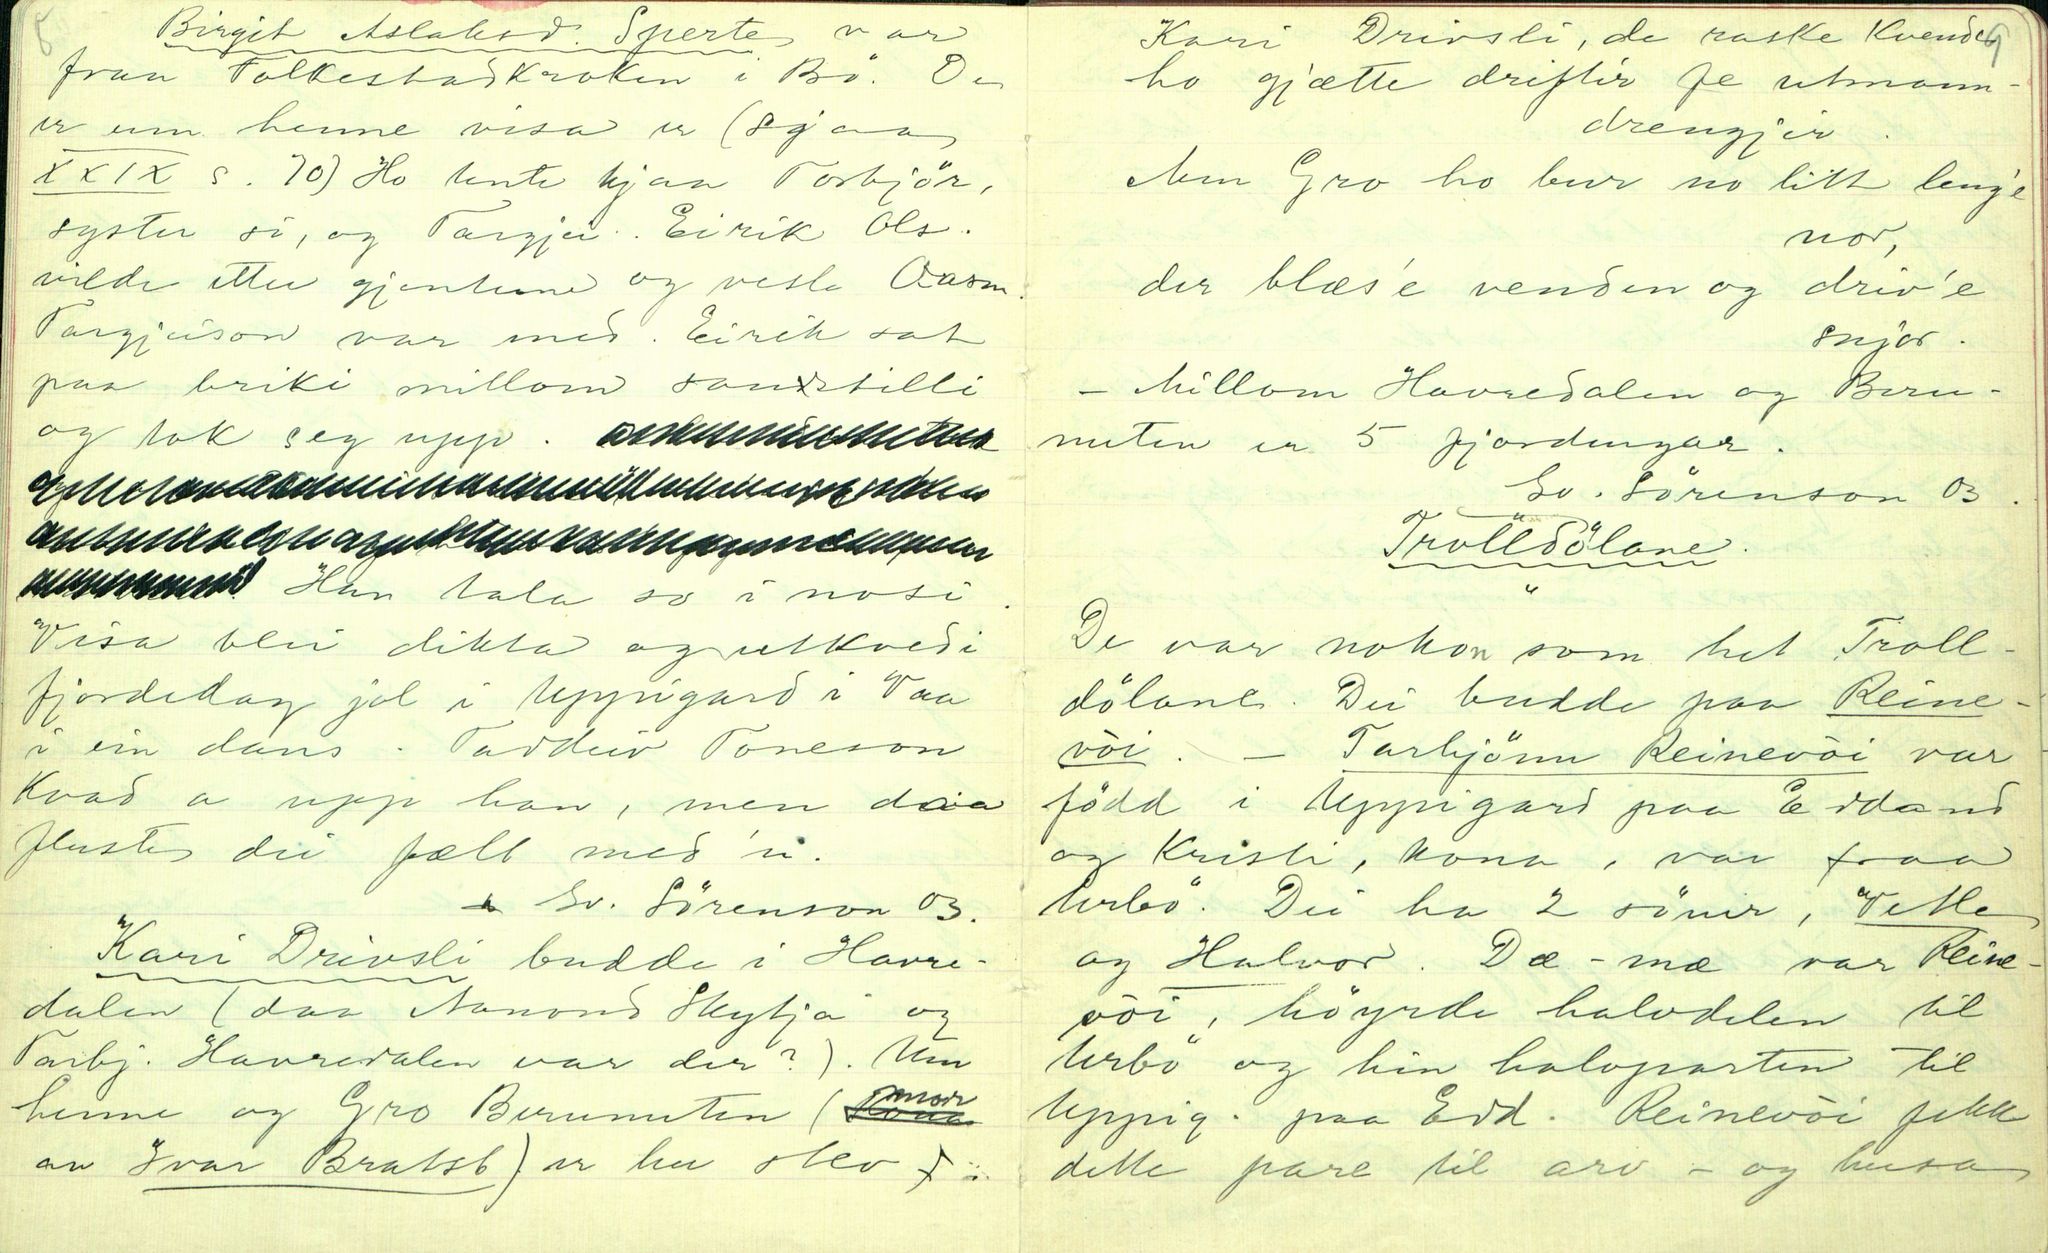 8
Birgit Aslaksd. Sperte var
fraa Folkestadkroken i Bö. De
er um henne visa er (Sjaa
XXIX s. 70) Ho tente hjaa Torbjör,
syster si, og Targjei. Eirik Ols.
vilde etter gjentune og vesle Aasm.
Targjeison var med. Eirik sat
paa briki millom sand stilli
og tok seg upp.
Han tala so i nosi.
Visa blei dikta og utkvedi
fjordedag jol i Uppigard i Vaa
i ein dans. Taddeiv Toneson
kvad a upp han, men daa
fluste dei fælt med 'n.
Sv. Sörenson 03.
Kari Drivsli budde i Havre-
dalen (daa Aamond Skybja og
Tarbj. Havredalen var der?). Um
henne og Gro Berunuten (mor
av Ivar Bratst) er hei stev:
9
Kari Drivsli, de raske Kvende
ho gjætte driftir fe utmann-
drengjir.
Men Gro ho bur no litt leng'e
nor,
der blæs'e venden og driv'e
snjor.
- Millom Havredalen og Beru-
nuten er 5 fjordungar.
Sv. Sörenson 03.
Trolldölane.
De var nokon som het Troll-
dölane. Dei budde paa Reine-
vòi. - Tarbjönn Reinevòi var
född i Uppigard paa Edland
og Kristi, kona, var fraa
Urbö. Dei ha 2 sönir, Vetle
og Halvor. Dæ-mæ var Reine-
vòi, höyrde halvdelen til
Urbö og hin halvparten til
Uppig. paa Edd. Reinevòi fekk
dette pare til arv - og husa